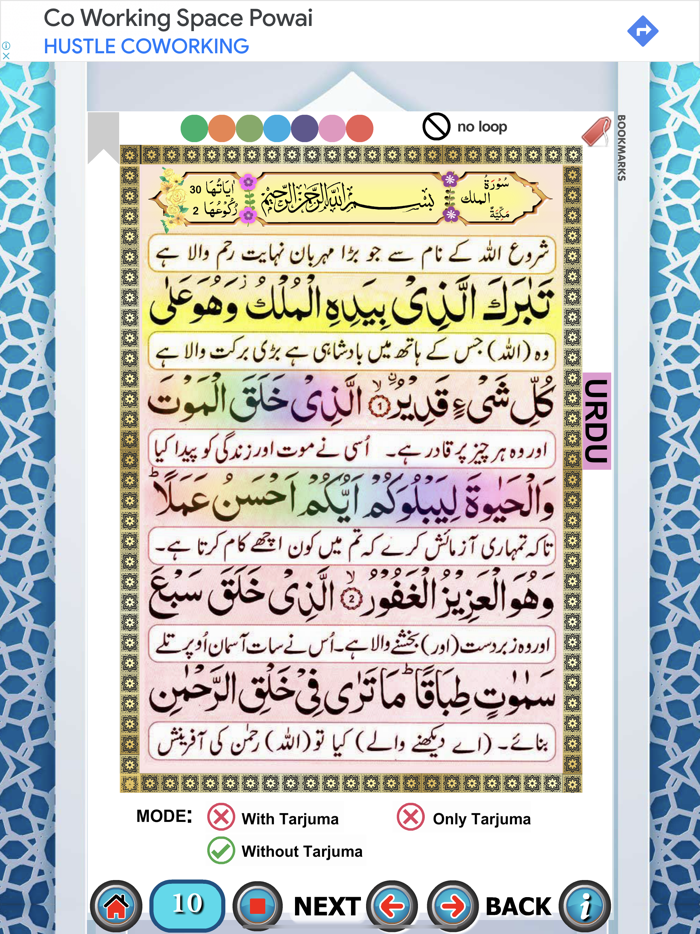 Co Working Space Powai
HUSTLE COWORKING
no loop
BOOKMARKS
سُوْرَةُ الملك مَكِّيَّةٌ
بِسْمِ اللهِ الرَّحْمٰنِ الرَّحِيْمِ
اٰيَاتُهَا 30
رُكُوْعُهَا 2
شروع اللہ کے نام سے جو بڑا مہربان نہایت رحم والا ہے
تَبٰرَكَ الَّذِىْ بِيَدِهِ الْمُلْكُ ز وَهُوَ عَلٰى
وہ (اللہ) جس کے ہاتھ میں بادشاہی ہے بڑی برکت والا ہے
كُلِّ شَىْءٍ قَدِيْرُ ۨ ۙ ﴿1﴾ الَّذِىْ خَلَقَ الْمَوْتَ
اور وہ ہر چیز پر قادر ہے۔ اُسی نے موت اور زندگی کو پیدا کیا
وَالْحَيٰوةَ لِيَبْلُوَكُمْ اَيُّكُمْ اَحْسَنُ عَمَلًا ؕ
تاکہ تمہاری آزمائش کرے کہ تم میں کون اچھے کام کرتا ہے۔
وَهُوَ الْعَزِيْزُ الْغَفُوْرُ ۙ ﴿2﴾ الَّذِىْ خَلَقَ سَبْعَ
اور وہ زبردست (اور) بخشنے والا ہے۔ اُس نے سات آسمان اُوپر تلے
سَمٰوٰتٍ طِبَاقًا ؕ مَا تَرٰى فِىْ خَلْقِ الرَّحْمٰنِ
بنائے۔ (اے دیکھنے والے) کیا تو (اللہ) رحمٰن کی آفرینش
URDU
MODE:
With Tarjuma
Only Tarjuma
Without Tarjuma
10
NEXT
BACK
i